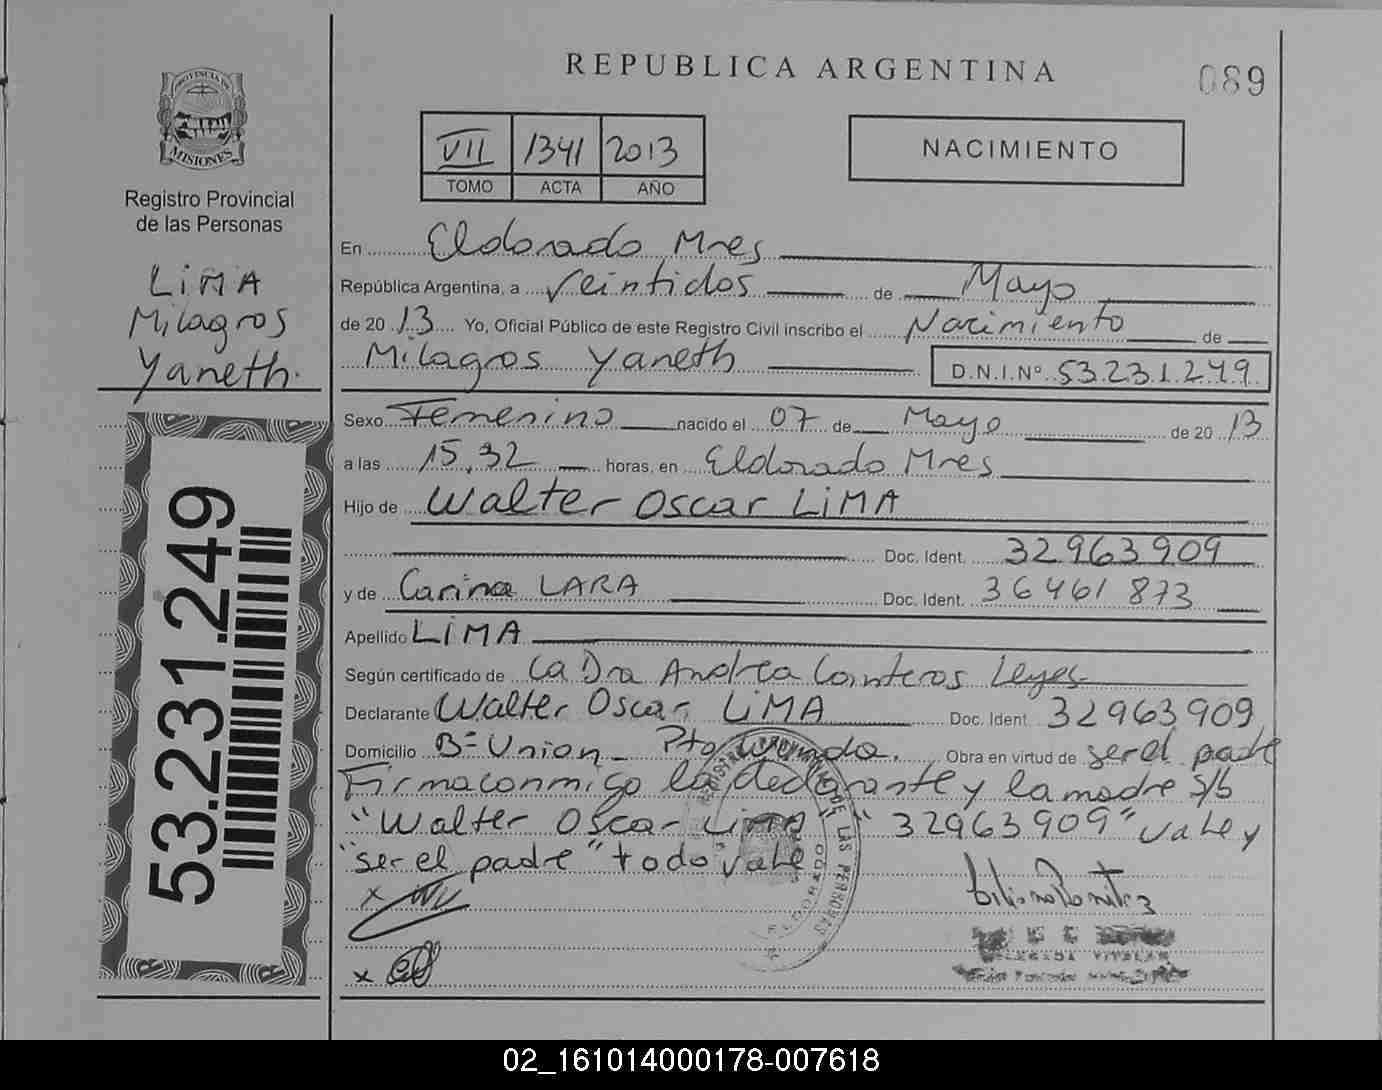 REPUBLICA ARGENTINA
089
PROVINCIA DE
MISIONES
Registro Provincial
de las Personas
LiMA
Milagros
Yaneth.
53.231.249
VII 1341 2013
TOMO ACTA AÑO
NACIMIENTO
En Eldorado Mnes
República Argentina, a Veintidos de Mayo
de 2013 Yo, Oficial Público de este Registro Civil inscribo el Nacimiento de
Milagros Yaneth D.N.I.Nº 53.231.249
Sexo Femenino nacido el 07 de Mayo de 2013
a las 15,32 horas, en Eldorado Mnes
Hijo de Walter Oscar LiMA
Doc. Ident. 32963909
y de Carina LARA Doc. Ident. 36461873
Apellido LiMA
Según certificado de La Dra Andrea Leyes
Declarante Walter Oscar LiMA Doc. Ident 32963909
Domicilio Bº Union Pto Obra en virtud de ser el padre
Firma conmigo la declarante y la madre s/b
"Walter Oscar Lima" "32963909" vale y
"ser el padre" todo vale
x
x
DE LAS PERSONAS
ELDORADO
02_161014000178-007618